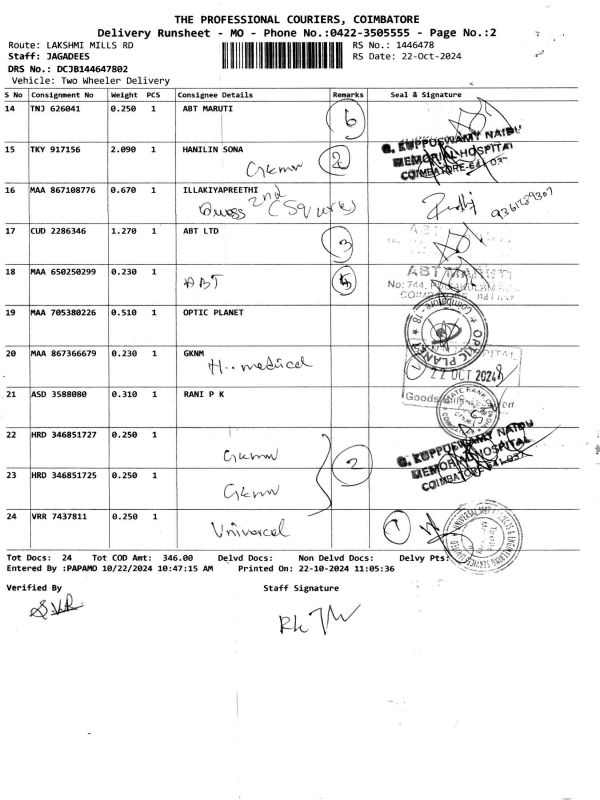 THE PROFESSIONAL COURIERS, COIMBATORE
Delivery Runsheet - MO - Phone No.:0422-3505555 - Page No.:2
Route: LAKSHMI MILLS RD RS No.: 1446478
Staff: JAGADEES RS Date: 22-Oct-2024
DRS No.: DCJB144647802
Vehicle: Two Wheeler Delivery
S No Consignment No Weight PCS Consignee Details Remarks Seal & Signature
14 TNJ 626041 0.250 1 ABT MARUTI 6
15 TKY 917156 2.090 1 HANILIN SONA 2
G. KUPPUSWAMY NAIDU
MEMORIAL HOSPITAL
COIMBATORE-641 037
Gknm
16 MAA 867108776 0.670 1 ILLAKIYAPREETHI
2nd
17 CUD 2286346 1.270 1 ABT LTD 3
18 MAA 650250299 0.230 1 ABT MARUTI
ABT No: 744,
19 MAA 705380226 0.510 1 OPTIC PLANET
OPTIC PLANET Coimbatore - 18
20 MAA 867366679 0.230 1 GKNM
medical 22 OCT 2024
21 ASD 3588080 0.310 1 RANI P K
Goods
22 HRD 346851727 0.250 1
Gknm 2
G. KUPPUSWAMY NAIDU
MEMORIAL HOSPITAL
COIMBATORE-641 037
23 HRD 346851725 0.250 1
Gknm
24 VRR 7437811 0.250 1
Univarcel 1
Tot Docs: 24 Tot COD Amt: 346.00 Delvd Docs: Non Delvd Docs: Delvy Pts:
Entered By :PAPAMO 10/22/2024 10:47:15 AM Printed On: 22-10-2024 11:05:36
Verified By Staff Signature
S.V.R